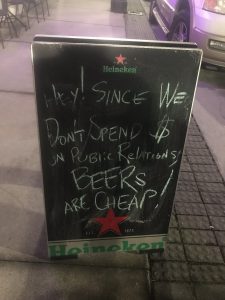 Heineken
HEY! SINCE WE
DON'T SPEND $
ON PUBLIC RELATIONS
BEERS
ARE CHEAP!
EST. 1873
Heineken